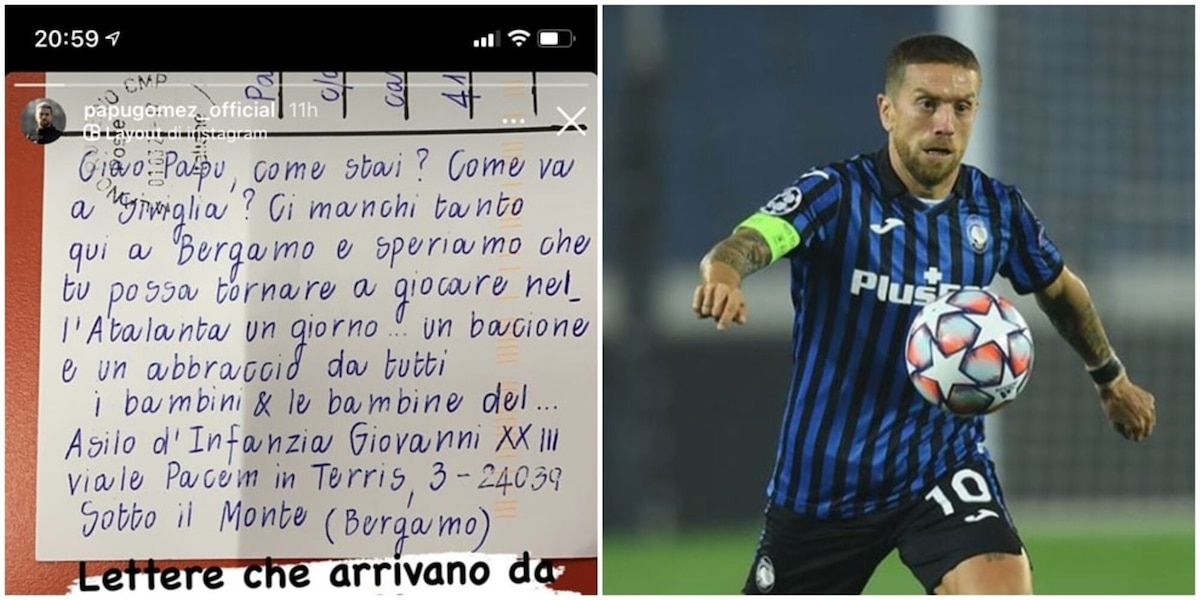 20:59
papugomez_official 11h
Layout di instagram
CMP
poste
Pa
c/o
ca
41
Ciao Papu, come stai? Come va
a Siviglia? Ci manchi tanto
qui a Bergamo e speriamo che
tu possa tornare a giocare nel_
l'Atalanta un giorno... un bacione
e un abbraccio da tutti
i bambini & le bambine del...
Asilo d'Infanzia Giovanni XXIII
viale Pacem in Terris, 3 - 24039
Sotto il Monte (Bergamo)
Lettere che arrivano da
Plus
10